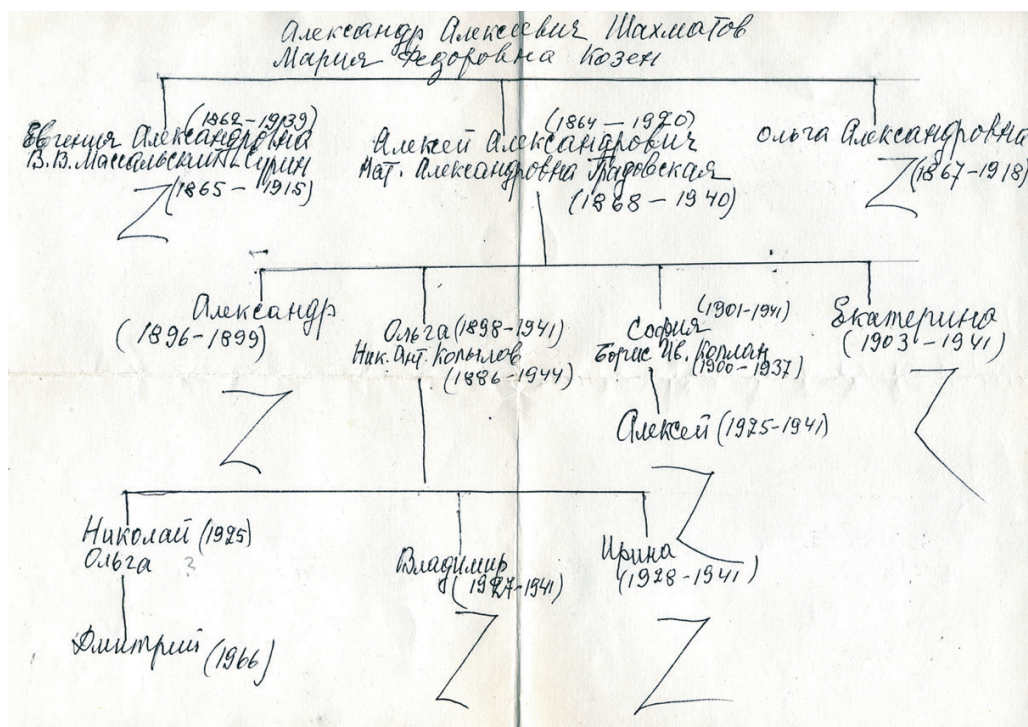 Александр Алексеевич Шахматов
Мария Федоровна Козен
(1862-1939)
Евгения Александровна
В.В. Массальский-Сурин
(1865 - 1915)
(1864 - 1920)
Алексей Александрович
Нат. Александровна Градовская
(1868 - 1940)
Ольга Александровна
(1867-1918)
Александр
(1896-1899)
Ольга (1898-1941)
Ник. Ант. Копылов
(1886-1944)
(1901-1941)
София
Борис Ив. Коплан
(1900-1937)
Екатерина
(1903-1941)
Алексей (1925-1941)
Николай (1925)
Ольга ?
Владимир
(1927-1941)
Ирина
(1928-1941)
Дмитрий (1966)